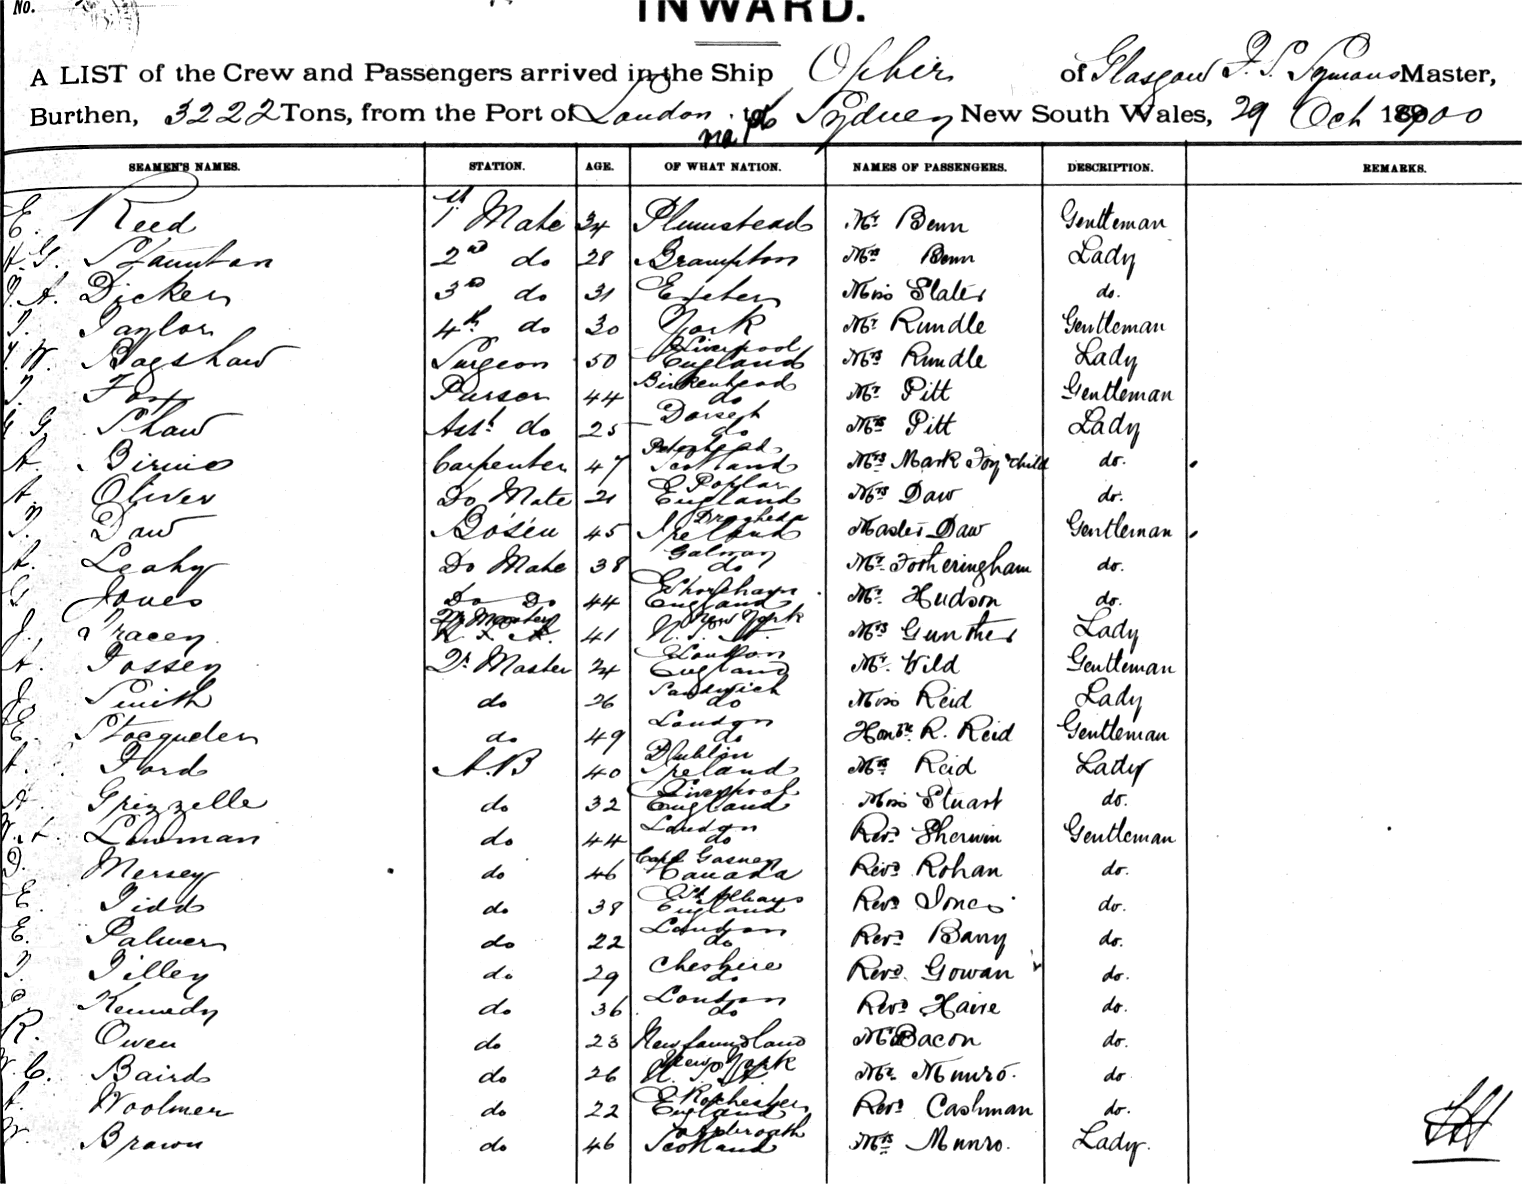 No.
INWARD.
A LIST of the Crew and Passengers arrived in the Ship Ophir of Glasgow F. S. Symons Master,
Burthen, 3222 Tons, from the Port of London to Sydney New South Wales, 29 Oct 1900
SEAMEN'S NAMES. STATION. AGE. OF WHAT NATION. NAMES OF PASSENGERS. DESCRIPTION. REMARKS.
E. Reed 1st Mate 34 Plumstead Mr Benn Gentleman
H. G. Staunton 2nd do 28 Brampton Mrs Benn Lady
A. Dicken 3rd do 31 Exeter Miss Slater do.
T. Taylor 4th do 30 York Mr Rundle Gentleman
W. Bagshaw Surgeon 50 Liverpool England Mrs Rundle Lady
T. Fox Purser 44 Birkenhead do Mr Pitt Gentleman
G. Shaw Asst do 25 Dorset do Mrs Pitt Lady
A. Birnie Carpenter 47 Peterhead Scotland Mrs Mark Foy & child do.
A. Oliver Do Mate 21 Poplar England Mrs Daw do.
T. Daw Bo'sen 45 Drogheda Ireland Master Daw Gentleman
A. Leahy Do Mate 38 Galway do Mr Fotheringham do.
G. Jones Do Do 44 England Mr Hudson do.
J. Tracey Qr Master 41 New York Mrs Gunther Lady
A. Fossey Qr Master 24 London England Mr Wild Gentleman
J. Smith do 26 Sandwich do Miss Reid Lady
E. Stocqueler do 49 London do Honble R. Reid Gentleman
Ford A.B 40 Dublin Ireland Mrs Reid Lady
A. Grizzelle do 32 Liverpool England Miss Stuart do.
Lowman do 44 London do Revd Sherwin Gentleman
D. Mersey do 46 Canada Revd Rohan do.
E. Tidd do 38 St Albans England Revd Jones do.
E. Palmer do 22 London do Revd Barry do.
T. Tilley do 29 Cheshire do Revd Gowan do.
Kennedy do 36 London do Revd Haire do.
R. Owen do 23 Newfoundland Mr Bacon do.
C. Baird do 26 New York Mr Munro. do
Woolmer do 22 Rochester England Revd Cashman do.
W. Brown do 46 Arbroath Scotland Mrs Munro. Lady.